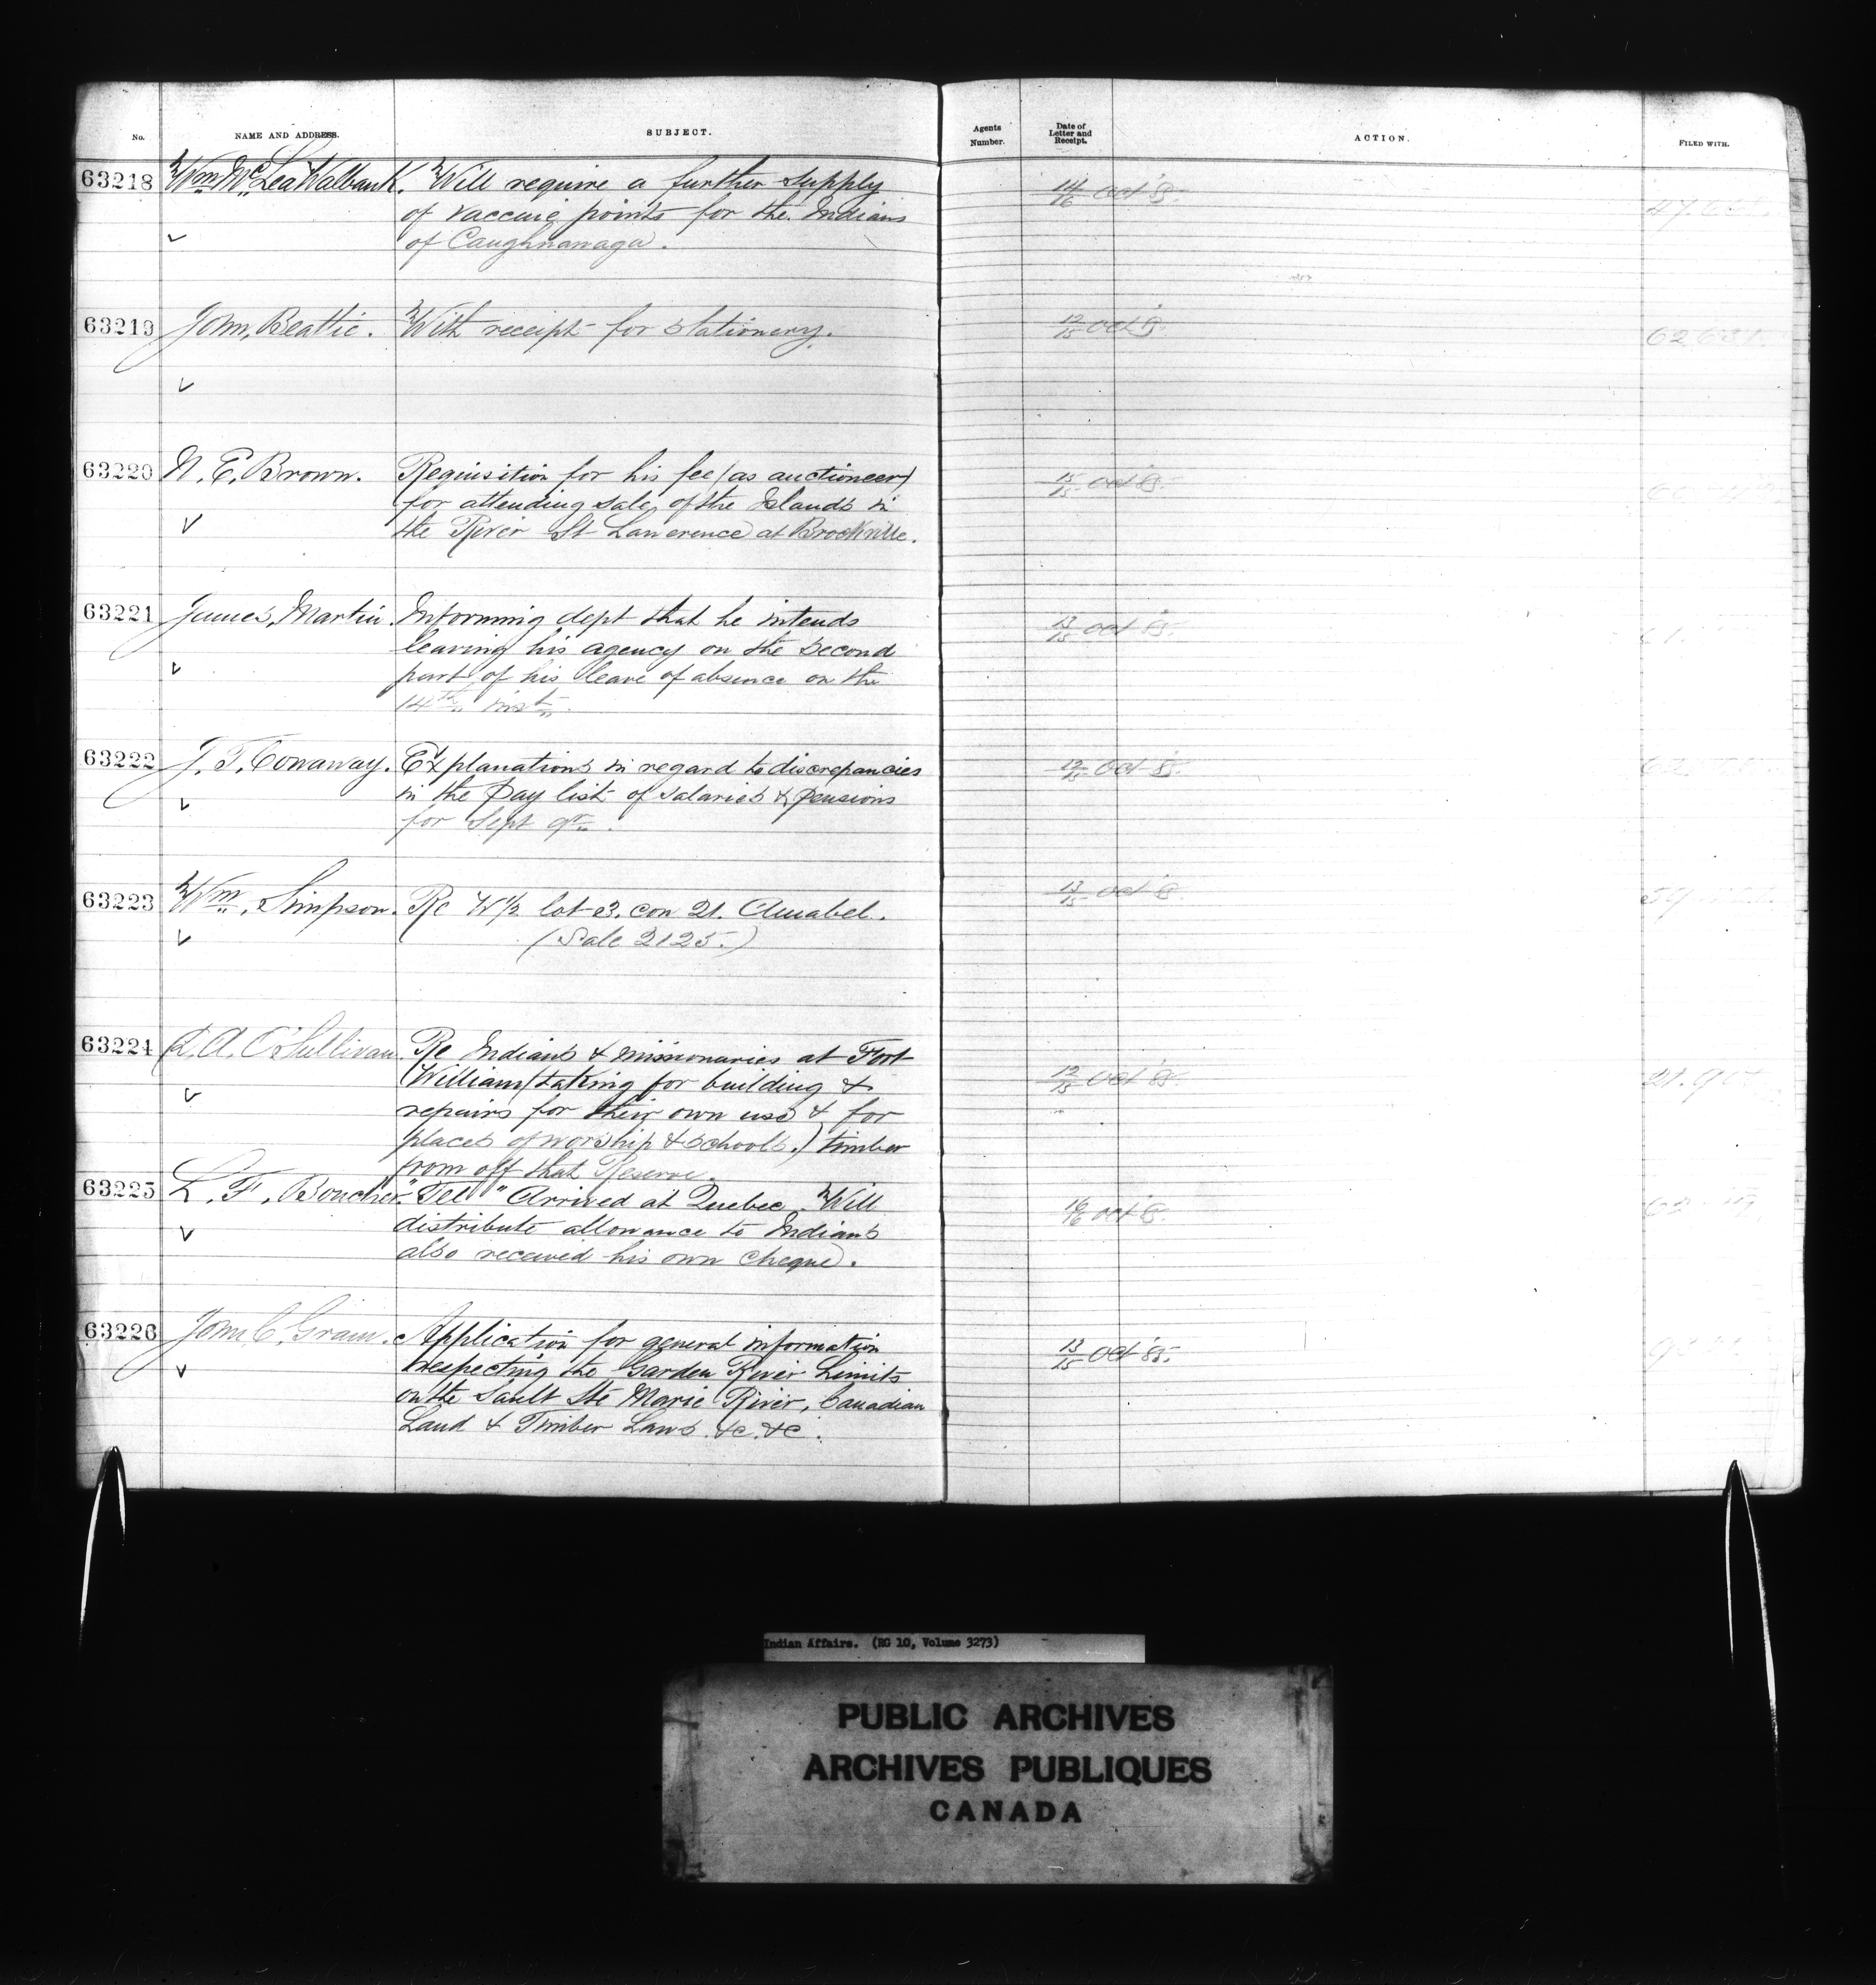 No.
NAME AND ADDRESS.
SUBJECT.
Agents Number.
Date of Letter and Receipt.
ACTION.
FILED WITH.
63218 Wm Mc Lea Walbank. Will require a further supply 14/16 Oct 85.
of vaccine points for the Indians
of Caughnawaga.
63219 John, Beattie. With receipt for stationery. 12/15 Oct 85. 62631.
63220 N. E. Brown. Requisition for his fee (as auctioneer) 15/15 Oct 85.
for attending sale, of the Islands in
the River St Lawerence at Brockville.
63221 James, Martin. Informing dept that he intends 13/15 Oct 85.
leaving his agency on the second
part of his leave of absence on the
14th inst.
63222 J. T. Conaway. Explanations in regard to discrepancies 12/15 Oct 85.
in the Pay list of salaries & pensions
for Sept qr.
63223 Wm, Simpson. Re W 1/2 lot 23. con 21. Amabel. 13/15 Oct 85.
(Sale 2125.)
63224 D. A. O'Sullivan Re Indians & missionaries at Fort
William (taking for building & 12/15 Oct 85.
repairs for their own use & for
places of worship & schools.) timber
from off that Reserve.
63225 L. F. Boucher. "Tel" Arrived at Quebec. Will 16/16 Oct 85.
distribute allowance to Indians
also received his own cheque.
63226 John C. Gram. Application for general information
respecting the Garden River Limits 13/15 Oct 85.
on the Sault Ste Marie River, Canadian
Land & Timber Laws &c. &c.
Indian Affairs. (RG 10, Volume 3273)
PUBLIC ARCHIVES
ARCHIVES PUBLIQUES
CANADA